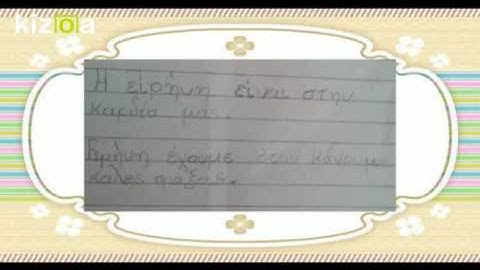 kizoa
Η ειρήνη είναι στην
καρδιά μας.
Ειρήνη έχουμε όταν κάνουμε
καλές πράξεις.